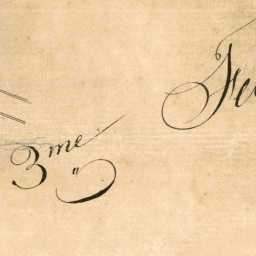 3me Fe